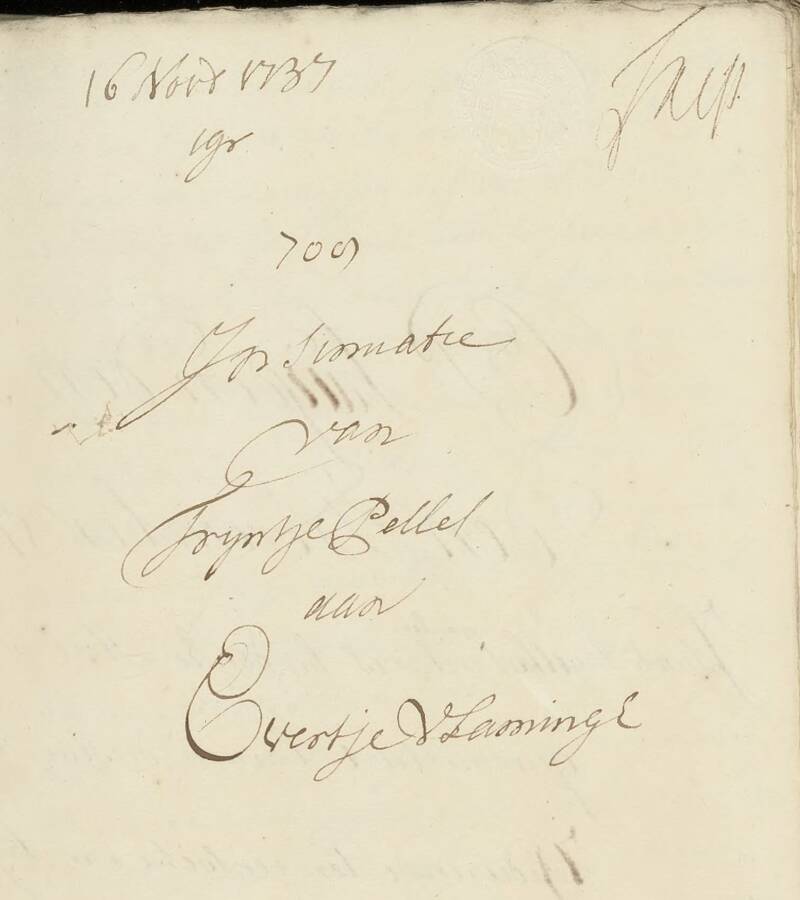 16 Novr 1737
1gr
709
Insinuatie
van
Tryntje Pellel
aan
Evertje Vlaminge